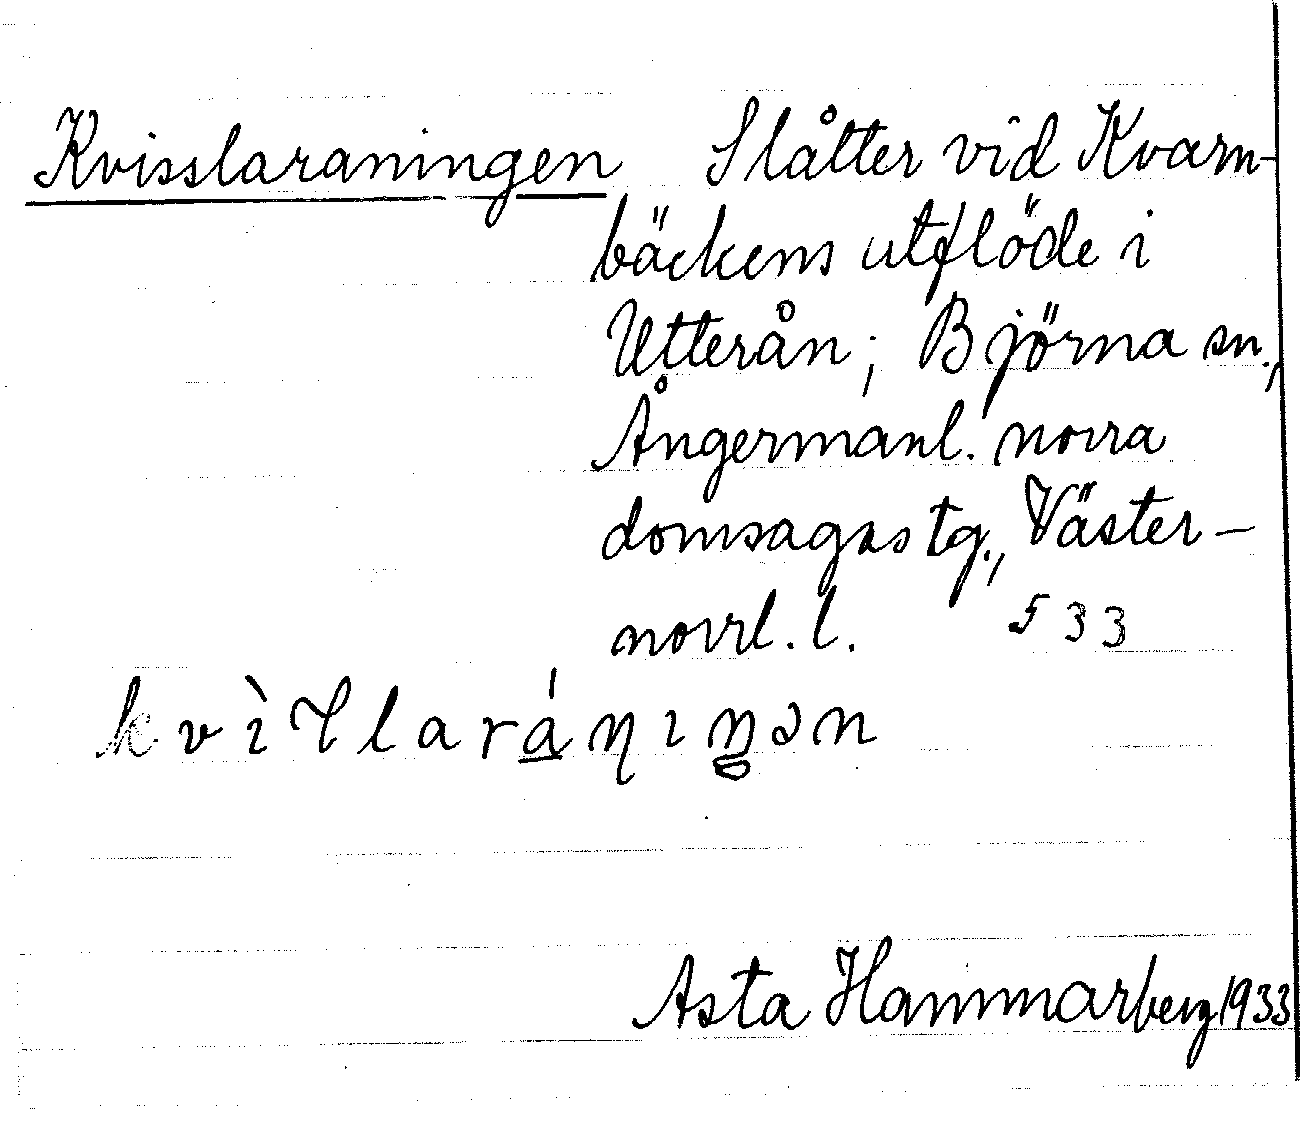 Kvisslaraningen Slåtter vid Kvarn-
bäckens utflöde i
Utterån; Björna sn.,
Ångermanl. norra
domsagas tg., Väster-
norrl. l. 533
Asta Hammarberg 1933